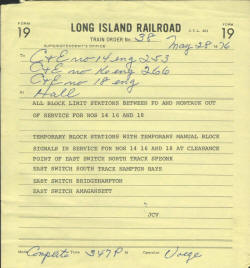 FORM
19
LONG ISLAND RAILROAD
FORM
19
TRAIN ORDER No. 38
SUPERINTENDENT'S OFFICE
May 28 76
To
C+E no 14 eng 253
C+E no 16 eng 266
C+E no 18 eng
At Hall
ALL BLOCK LIMIT STATIONS BETWEEN PD AND MONTAUK OUT
OF SERVICE FOR NOS 14 16 AND 18
TEMPORARY BLOCK STATIONS WITH TEMPORARY MANUAL BLOCK
SIGNALS IN SERVICE FOR NOS 14 16 AND 18 AT CLEARANCE
POINT OF EAST SWITCH NORTH TRACK SPEONK
EAST SWITCH SOUTH TRACK HAMPTON BAYS
EAST SWITCH BRIDGEHAMPTON
EAST SWITCH AMAGANSETT
JCY
Made Complete Time 347 P M Operator